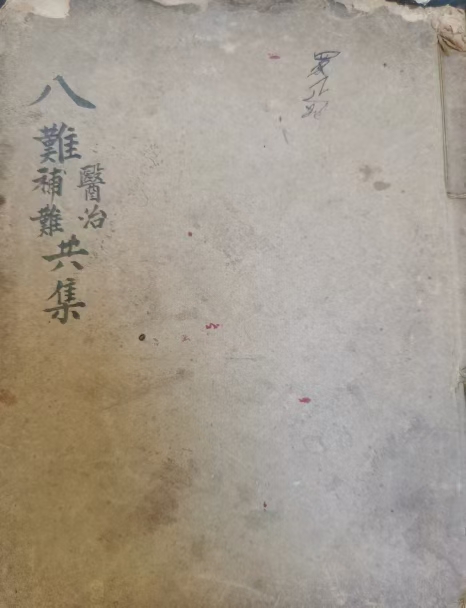 八難醫治補難共集